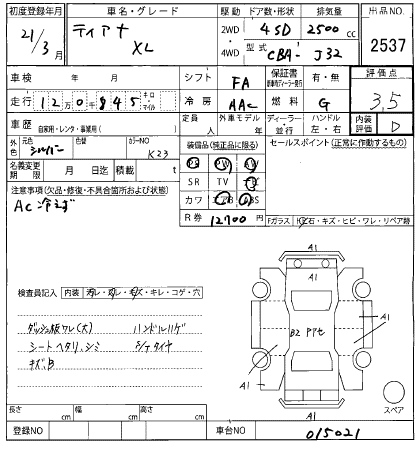 初度登録年月 車名・グレード 駆動 ドア数・形状 排気量 出品NO.
21/3月 ティアナ XL 2WD 4WD 4SD 2500cc 2537
型式 CBA- J32
車検 年 月 シフト FA 保証書 有・無 評価点
走行 12万0千845キロ・マイル 冷房 AAC 燃料 G 3.5
車歴 自家用・レンタ・事業用( ) 定員 人 外車モデル 年 ディーラー・並行 ハンドル 左・右 内装評価 D
外色 元色 シルバー 色 カラーNO K23 装備品(純正品に限る) セールスポイント(正常に作動するもの)
名義変更期限 月 日 積載 t PS PW
注意事項(欠品・修復・不具合箇所および状態) SR TV
AC冷えず カワ ABS
R券 12700円
Fガラス
検査員記入 内装 汚レ・スレ・キズ・キレ・コゲ・穴
A1
A1
ダッシュ板ワレ(大) ハンドルハゲ
シートヘタリ、シミ S/Tタイヤ
キズ、B
B2
A1
A1
A1
スペア
長さ cm 幅 cm 高さ cm
登録NO 車台NO 015021